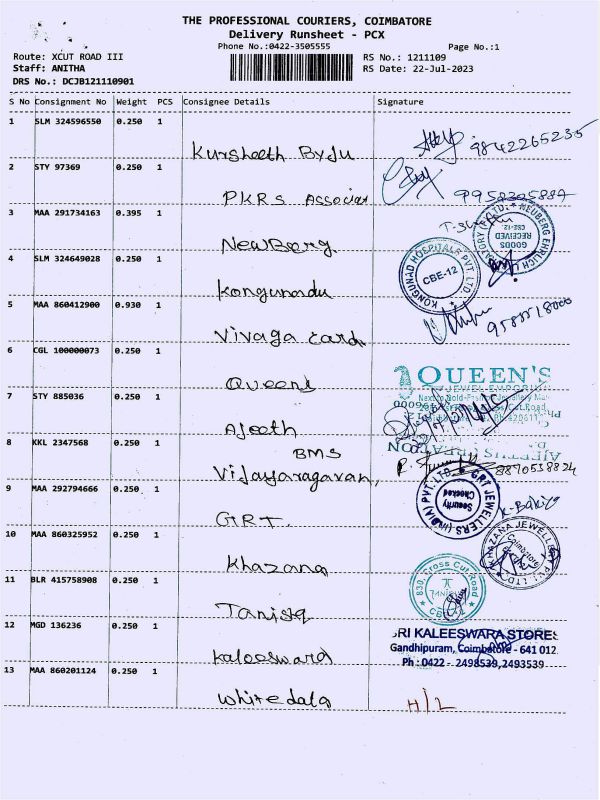 THE PROFESSIONAL COURIERS, COIMBATORE
Delivery Runsheet - PCX
Phone No.:0422-3505555
Page No.:1
Route: XCUT ROAD III
RS No.: 1211109
Staff: ANITHA
RS Date: 22-Jul-2023
DRS No.: DCJB121110901
S No Consignment No Weight PCS Consignee Details Signature
1 SLM 324596550 0.250 1
Kursheeth Byju
9842265235
2 STY 97369 0.250 1
PKRS Associat
3 MAA 291734163 0.395 1
NewBerg
NEUBERG EHRLICH
GOODS RECEIVED
CBE-12
4 SLM 324649028 0.250 1
Kongunadu
KONGUNAD HOSPITALS PVT. LTD
CBE-12
5 MAA 860412900 0.930 1
Vivaga Card
6 CGL 100000073 0.250 1
Queens
QUEEN'S
JEWEL EMPORIUM
7 STY 885036 0.250 1
Ajeeth
8 KKL 2347568 0.250 1
BMS
Vijayaragavan,
8870538824
9 MAA 292794666 0.250 1
GRT
GRT JEWELLERS (INDIA) PVT. LTD.
Security Checked
10 MAA 860325952 0.250 1
Khazana
KHAZANA JEWELLERY PVT. LTD.
Coimbatore
11 BLR 415758908 0.250 1
Tanisq
830, Cross Cut Road
TANISHQ
12 MGD 136236 0.250 1
Kaleeswara
SRI KALEESWARA STORES
Gandhipuram, Coimbatore - 641 012.
Ph : 0422 - 2498539, 2493539
13 MAA 860201124 0.250 1
Whitedata
H/L